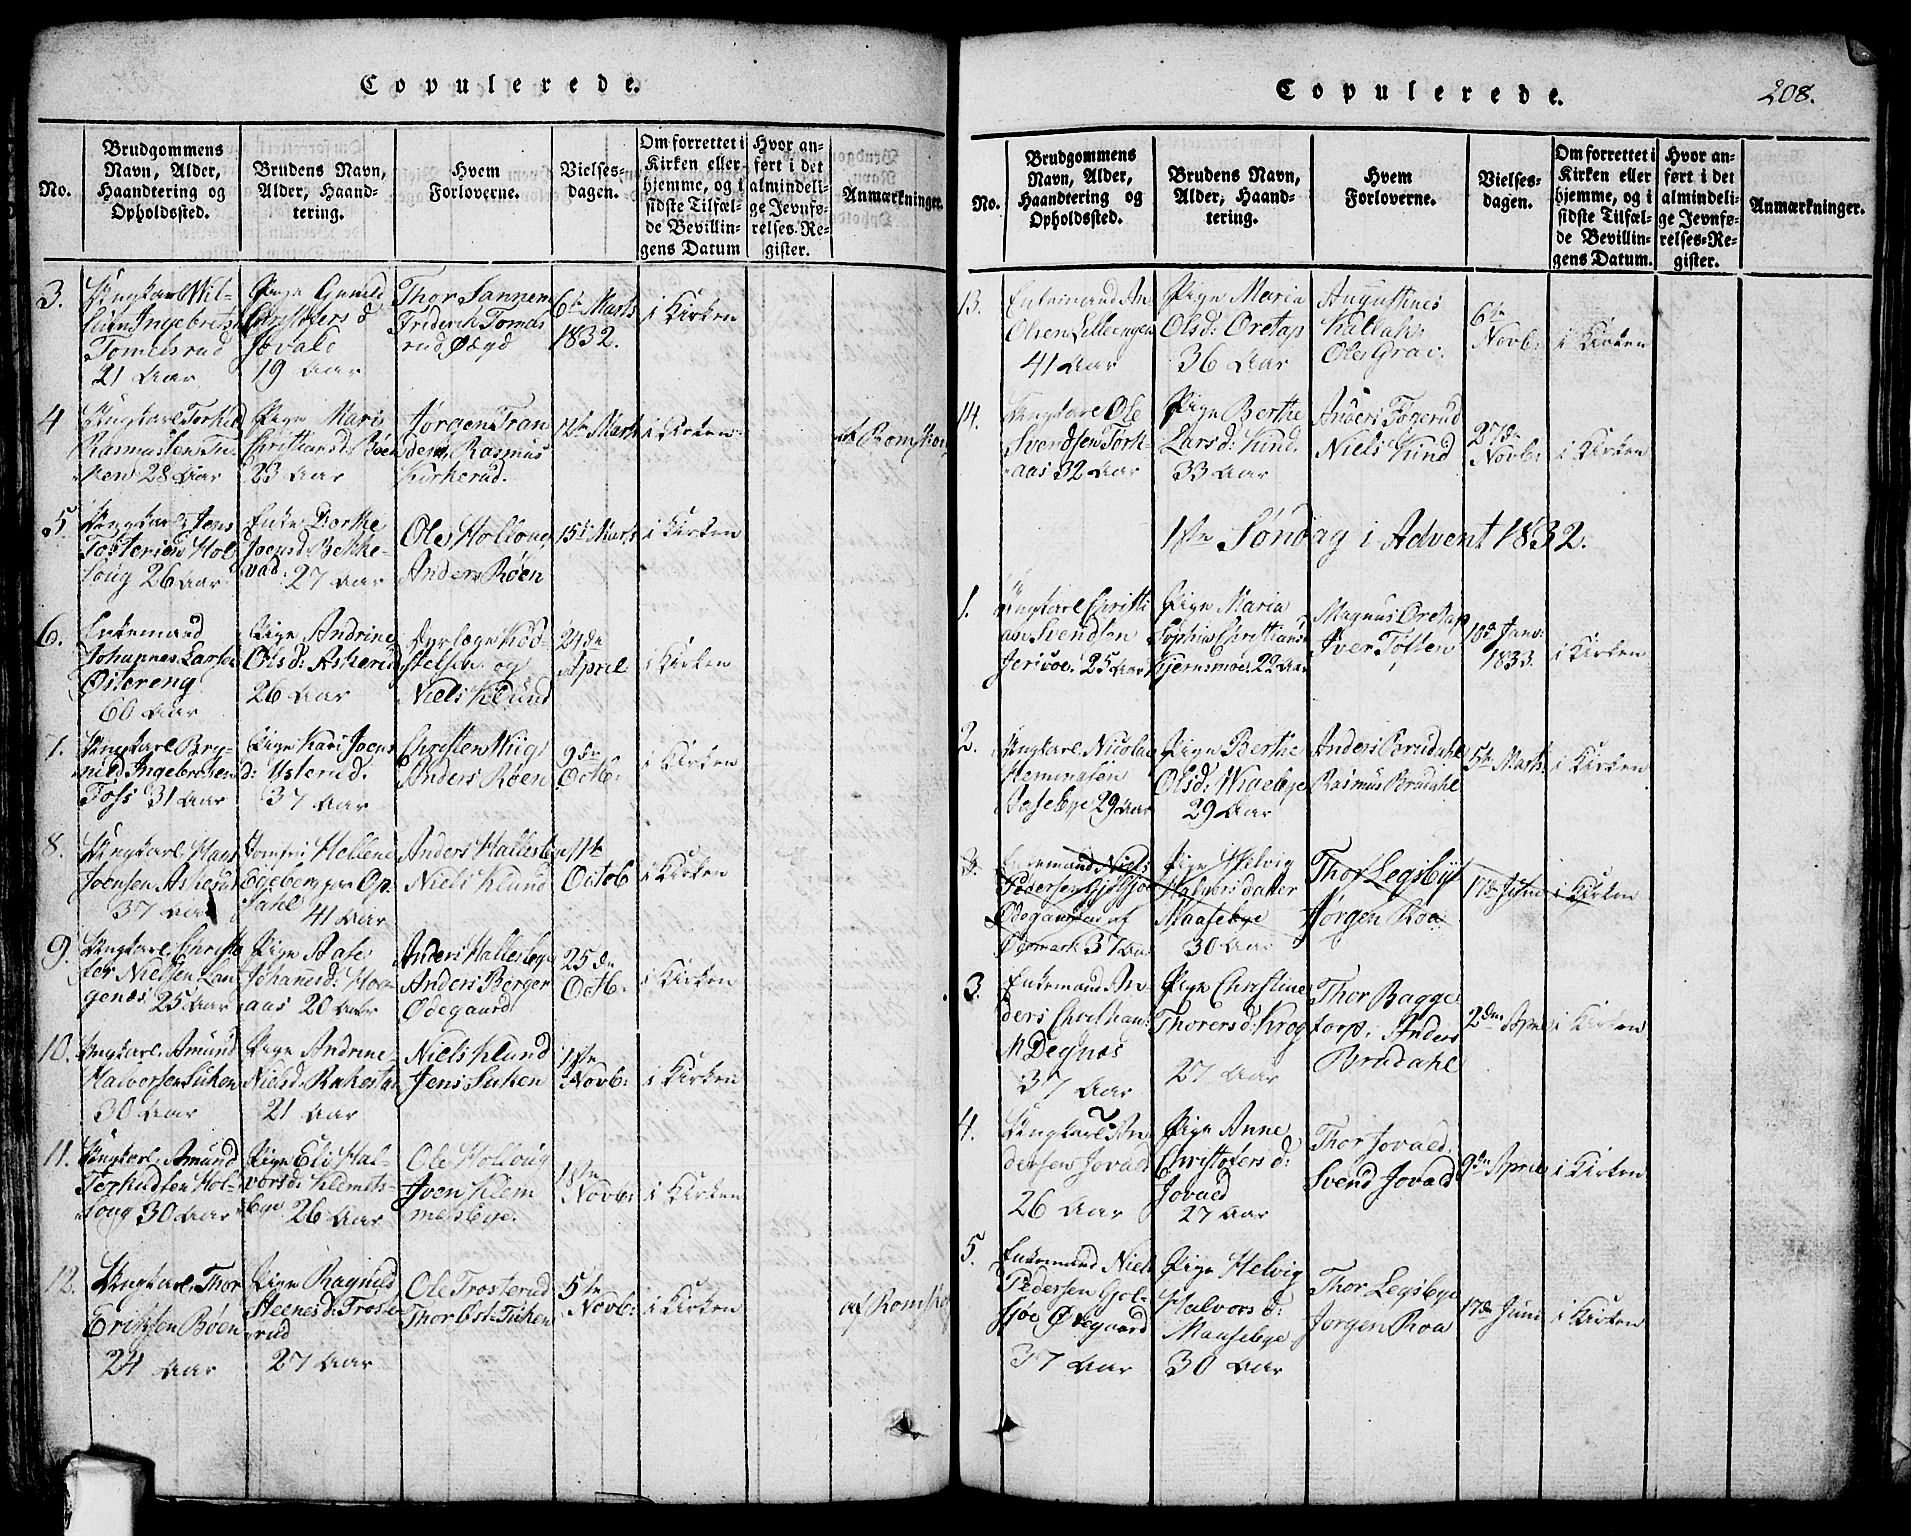 Copulerede.
No.
Brudgommens
Navn, Alder,
Haandtering og
Opholdssted.
Brudens Navn,
Alder, Haand-
tering.
Hvem
Forloverne.
Vielses-
dagen.
Om forrettet i
Kirken eller
hjemme, og i
sidste Tilfæl-
de Bevillin-
gens Datum
Hvor an-
ført i det
almindeli-
ge Jevnfø-
relses-Re-
gister.
Anmærkninger.
3.
Ungkarl Wil-
Tomelsrud
21 Aar
Pige Gunild
Christofersd
Jovald
19 Aar
Thor Sannem
Friderik Tomas
rud Øægd
6te Marts
1832.
i Kirken
4
Ungkarl Torkild
Rasmussen Tu-
ken 28 Aar
Pige Mari
Christiansd: Böen
23 Aar
Jørgen Tran
dem, Rasmus
Kirkerud.
12te Marts
i Kirken
af Romskog
5.
Ungkarl Jens
Tostensen Hol-
loug 26 Aar
Enke Dorthe
Joensd: Bekke-
vad. 27 Aar
Ole Holloug
Anders Röen
15de Marts
i Kirken
6.
Enkemand
Johannes Larsen
Østereng
60 Aar
Pige Andrine
Olsd: Askerud
26 Aar
Dyrlæge Kød-
stelsen og
Niels Klund
24de
April
i Kirken
7.
Ungkarl Bry-
nild Ingebretsen
Foss 31 Aar
Pige Kari Joens
d: Usterud.
37 Aar
Christen Wiig
Anders Röen
9de
Octb:
i Kirken
8.
Ungkarl Hans
Joensen Askerud
37 Aar
Jomfru Hellene
Egeberg paa Op-
sahl 41 Aar
Anders Hallesbye
Niels Klund
11te
Octob
i Kirken
9.
Ungkarl Christo
fer Nielsen Lan
genæs 25 Aar
Pige Aase
Johannesd: Hoa-
aas 20 Aar
Anders Hallesbye
Anders Berger
Ødegaard
25de
Octb:
i Kirken
10.
Ungkarl Amund
Halvorsen Tuken
30 Aar
Pige Andrine
Nielsd: Rakestad
21 Aar
Niels Klund
Jens Tuken
1ste
Novb:
i Kirken
11.
Ungkarl Amund
Terkildsen Hol-
loug 30 Aar
Pige Eli Hal-
vorsd: Klemets-
bye 26 Aar
Ole Holloug
Iven Klem
metsbye.
1ste
Novb:
i Kirken
12.
Ungkarl Thor
Eriksen Böen
24 Aar
Pige Ragnild
Steenesd: Troste-
rud
27 Aar
Ole Trosterud
Thorbst: Tuken
5te
Novb:
i Kirken
af Romskog
Copulerede.
208.
No.
Brudgommens
Navn, Alder,
Haandtering og
Opholdssted.
Brudens Navn,
Alder, Haand-
tering.
Hvem
Forloverne.
Vielses-
dagen.
Om forrettet i
Kirken eller
hjemme, og i
sidste Tilfæl-
de Bevillin-
gens Datum.
Hvor an-
ført i det
almindeli-
ge Jevnfø-
relses-Re-
gister.
Anmærkninger.
13.
Enkemand An
Olsen Lilleengen
41 Aar
Pige Maria
Olsd: Oretap
36 Aar
Augustines
Kallak:
Ole Grav.
6te
Novb:
i Kirken
14.
Ungkarl Ole
Svendsen Tork-
aas 32 Aar
Pige Berthe
Larsd: Kind.
33 Aar
Anders Fogerud
Niels Kind
27de
Novb:
i Kirken
1ste Søndag i Advent 1832.
1.
Ungkarl Christi
an Svendsen
Jericoe. 25 Aar
Pige Maria
Sophia Christiansd
Kjernsmoe. 22 Aar
Magnus Oretap
Iver Toften
10de Janv:
1833.
i Kirken
2.
Ungkarl Nicolai
Hemingsen
Aasebye 29 Aar
Pige Berthe
Olsd: Wigebye
29 Aar
Anders Brudahl
Rasmus Brudahl
5te Marts
i Kirken
3.
Enkemand Niels
Pedersen Gjølsjøe
Ødegaarden af
Ødemark 37 Aar
Pige Helvig
Halvorsdatter
Maasebye
30 Aar
Thor Legsbye
Jørgen Roa
17de Juni
i Kirken
3.
Enkemand An
ders Christian
M Degnæs
37 Aar
Pige Christine
Thorersd: Krog
27 Aar
Thor Bagge
torp. Anders
Brudahl
2den April
i Kirken
4.
Ungkarl An
dersen Jovald
26 Aar
Pige Anne
Christofersd:
Jovald
27 Aar
Thor Jovald.
Svend Jovald
9de April
i Kirken
5.
Enkemand Niels
Pedersen Gøl-
sjøe Ødegaard
37 Aar
Pige Helvig
Halvorsd:
Maasebye
30 Aar
Thor Legsbye
Jørgen Roa
17de Juni
i Kirken